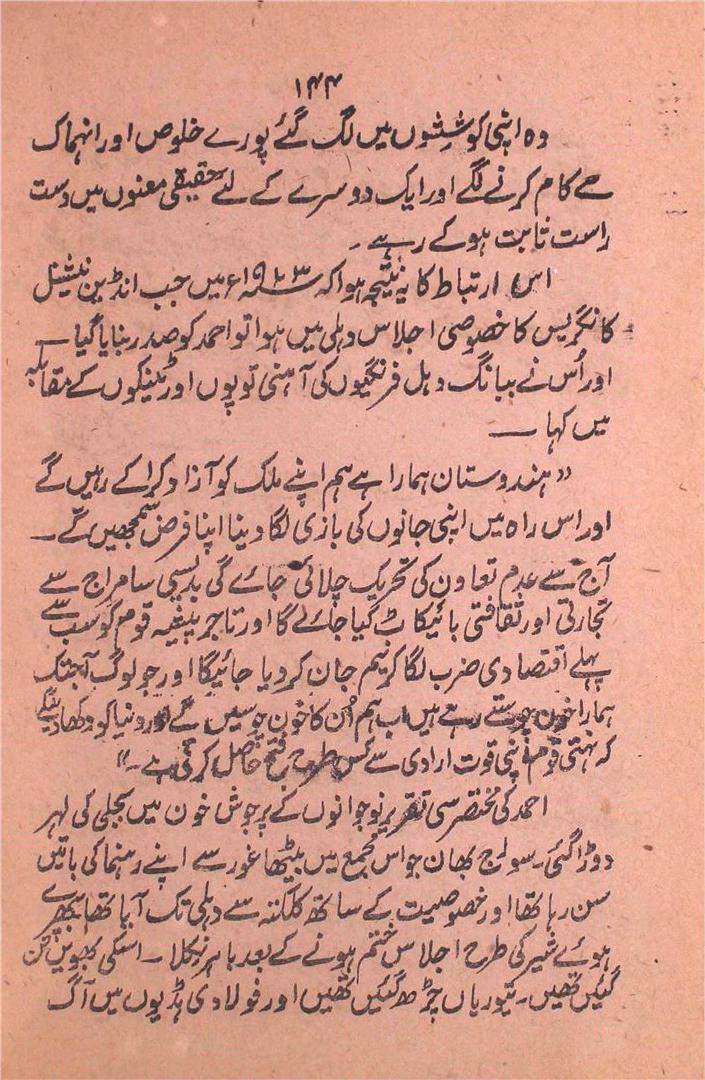 ۱۴۴
وہ اپنی کوششوں میں لگ گئے پورے خلوص اور انہماک
سے کام کرنے لگے اور ایک دوسرے کے لئے حقیقی معنوں میں دست
راست ثابت ہو کے رہے۔
اس ارتباط کا یہ نتیجہ ہوا کہ ۱۹۲۳ء میں جب انڈین نیشنل
کانگریس کا خصوصی اجلاس دہلی میں ہوا تو احمد کو صدر بنایا گیا—
اور اُس نے ببانگ دہل فرنگیوں کی آہنی توپوں اور ٹینکوں کے مقابلہ
میں کہا —
”ہندوستان ہمارا ہے ہم اپنے ملک کو آزاد کرا کے رہیں گے
اور اس راہ میں اپنی جانوں کی بازی لگا دینا اپنا فرض سمجھیں گے۔
آج سے عدم تعاون کی تحریک چلائی جائے گی بدیسی سامراج سے
تجارتی اور ثقافتی بائیکاٹ کیا جائے گا اور تاجر پیشہ قوم کو سب سے
پہلے اقتصادی ضرب لگا کر نیم جان کر دیا جائیگا اور جو لوگ آجتک
ہمارا خون چوستے رہے ہیں اب ہم اُن کا خون چوسیں گے اور دنیا کو دکھا دینگے
کہ نہتی قوم اپنی قوت ارادی سے کس طرح فتح حاصل کرتی ہے۔“
احمد کی مختصر سی تقریر نوجوانوں کے پرجوش خون میں بجلی کی لہر
دوڑا گئی۔ سورج بھان جو اس مجمع میں بیٹھا غور سے اپنے رہنما کی باتیں
سن رہا تھا اور خصوصیت کے ساتھ کلکتہ سے دہلی تک آیا تھا بپھرے
ہوئے شیر کی طرح اجلاس ختم ہونے کے بعد باہر نکلا۔ اسکی بھویں تن
گئیں تھیں۔ تیوریاں چڑھ گئیں تھیں اور فولادی ہڈیوں میں آگ